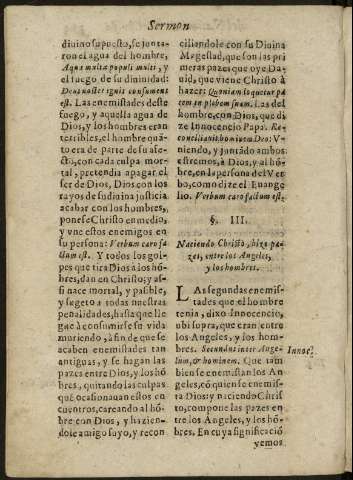 Sermon
diuino supuesto, se junta-
ron el agua del hombre,
Aqua multæ populi multi, y
el fuego de su diuinidad:
Deus noster ignis consumens
est. Las enemistades deste
fuego, y aquella agua de
Dios, y los hombres eran
terribles, el hombre quã-
to era de parte de su afe-
cto, con cada culpa mor-
tal, pretendia apagar el
ser de Dios, Dios con los
rayos de su diuina justicia
acabar con los hombres,
ponese Christo en medio,
y vne estos enemigos en
su persona: Verbum caro fa-
ctum est. Y todos los gol-
pes que tira Dios a los hõ-
bres, dan en Christo; y as-
si nace mortal, y pasible,
y sugeto a todas nuestras
penalidades, hasta que lle-
gue à consumirse su vida
muriendo, à fin de que se
acaben enemistades tan
antiguas, y se hagan las
pazes entre Dios, y los hõ-
bres, quitando las culpas
què ocasionauan estos en
cuentros, careando al hõ-
bre con Dios, y hazien-
dose amigo suyo, y recon
ciliandole con su Diuina
Magestad, que son las pri
meras pazes que oye Da-
uid, que viene Christo à
hazer: Quoniam loquetur pa
cem in plebem suam. Las del
hombre, con Dios, que di
ze Innocencio Papa: Re-
conciliãnis hominem Deo: V-
niendo, y juntãdo ambos
estremos, à Dios, y al hõ-
bre, en la persona del Ver
bo, como dize el Euange
lio. Verbum caro factum est.
§. III.
Naciendo Christo, hizo pa-
zes, entre los Angeles,
y los hombres.
LAs segundas enemis-
tades que el hombre
tenia, dixo Innocencio,
vbi supra, que eran entre
los Angeles, y los hom-
bres. Secundus inter Ange-
lum, & hominem. Que tam
bien se enemistan los An
geles, cõ quien se enemis-
ta Dios; y naciendo Chris
to, compone las pazes en
tre los Angeles, y los hõ-
bres. En cuya significaciõ
Innoc.
yemos